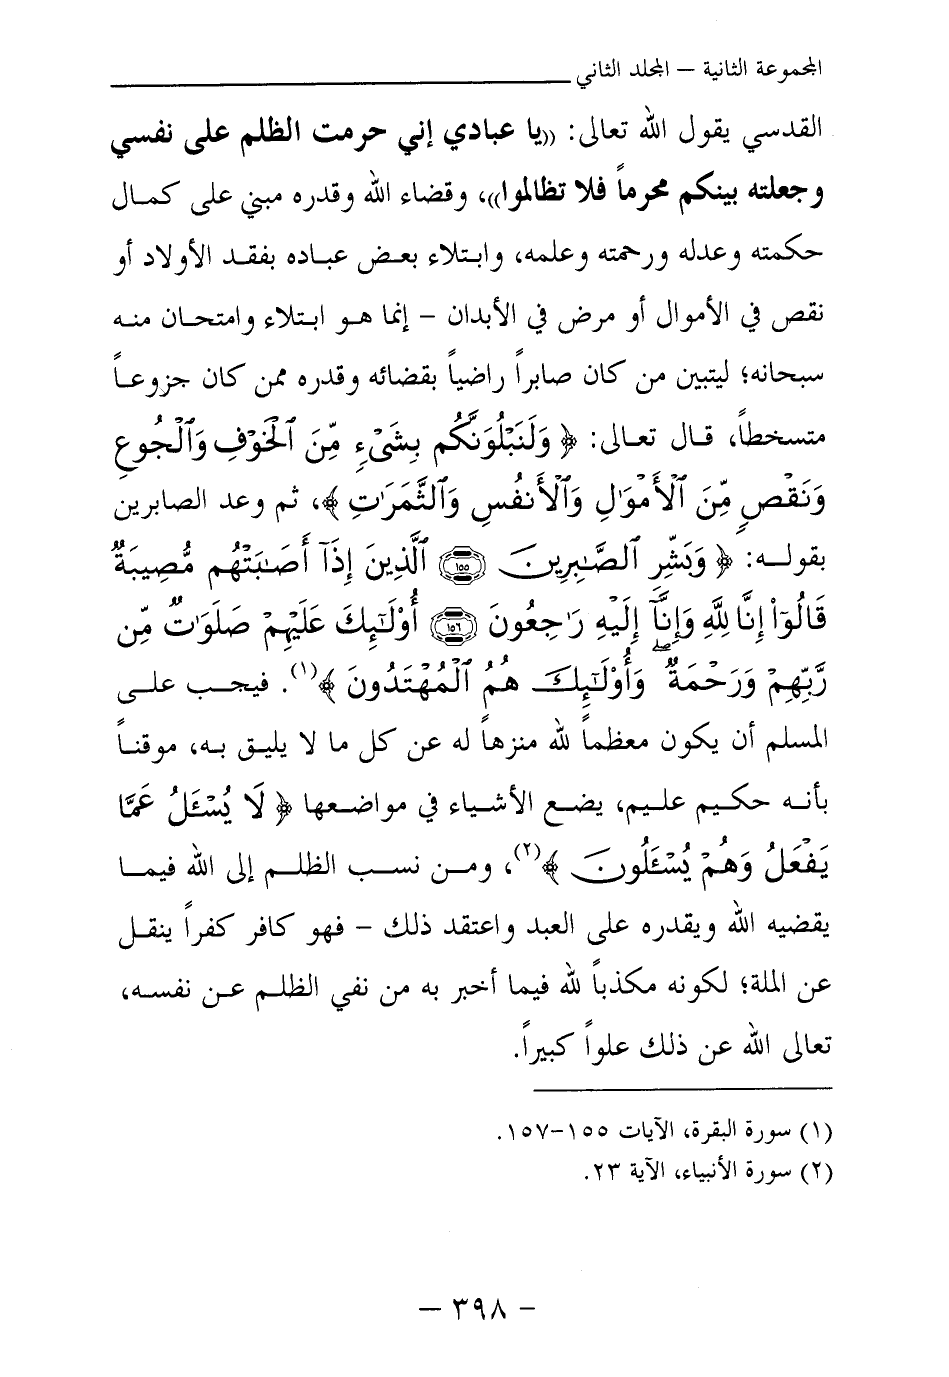 المجموعة الثانية – المجلد الثاني
القدسي يقول الله تعالى: ((يا عبادي إني حرمت الظلم على نفسي
وجعلته بينكم محرماً فلا تظالموا))، وقضاء الله وقدره مبني على كمال
حكمته وعدله ورحمته وعلمه، وابتلاء بعض عباده بفقد الأولاد أو
نقص في الأموال أو مرض في الأبدان – إنما هو ابتلاء وامتحان منه
سبحانه؛ ليتبين من كان صابراً راضياً بقضائه وقدره ممن كان جزوعاً
متسخطاً، قال تعالى: ﴿ وَلَنَبْلُوَنَّكُم بِشَىْءٍ مِّنَ ٱلْخَوْفِ وَٱلْجُوعِ
وَنَقْصٍ مِّنَ ٱلْأَمْوَٰلِ وَٱلْأَنفُسِ وَٱلثَّمَرَٰتِ ﴾، ثم وعد الصابرين
بقوله: ﴿ وَبَشِّرِ ٱلصَّٰبِرِينَ ١٥٥ ٱلَّذِينَ إِذَآ أَصَٰبَتْهُم مُّصِيبَةٌ
قَالُوٓا۟ إِنَّا لِلَّهِ وَإِنَّآ إِلَيْهِ رَٰجِعُونَ ١٥٦ أُو۟لَٰٓئِكَ عَلَيْهِمْ صَلَوَٰتٌ مِّن
رَّبِّهِمْ وَرَحْمَةٌ ۖ وَأُو۟لَٰٓئِكَ هُمُ ٱلْمُهْتَدُونَ ﴾(١). فيجب على
المسلم أن يكون معظماً لله منزهاً له عن كل ما لا يليق به، موقناً
بأنه حكيم عليم، يضع الأشياء في مواضعها ﴿ لَا يُسْـَٔلُ عَمَّا
يَفْعَلُ وَهُمْ يُسْـَٔلُونَ ﴾(٢)، ومن نسب الظلم إلى الله فيما
يقضيه الله ويقدره على العبد واعتقد ذلك – فهو كافر كفراً ينقل
عن الملة؛ لكونه مكذباً لله فيما أخبر به من نفي الظلم عن نفسه،
تعالى الله عن ذلك علواً كبيراً.
(١) سورة البقرة، الآيات ١٥٥-١٥٧.
(٢) سورة الأنبياء، الآية ٢٣.
– ٣٩٨ –